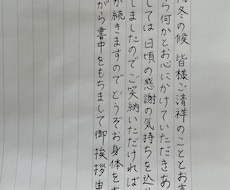 冬の候 皆様ご清祥のこととお
ら何かとお心にかけていただきあ
しては日頃の感謝の気持ちを込
しましたのでご笑納いただければ
が続きますのでどうぞお身体を
がら書中をもちまして御挨拶申